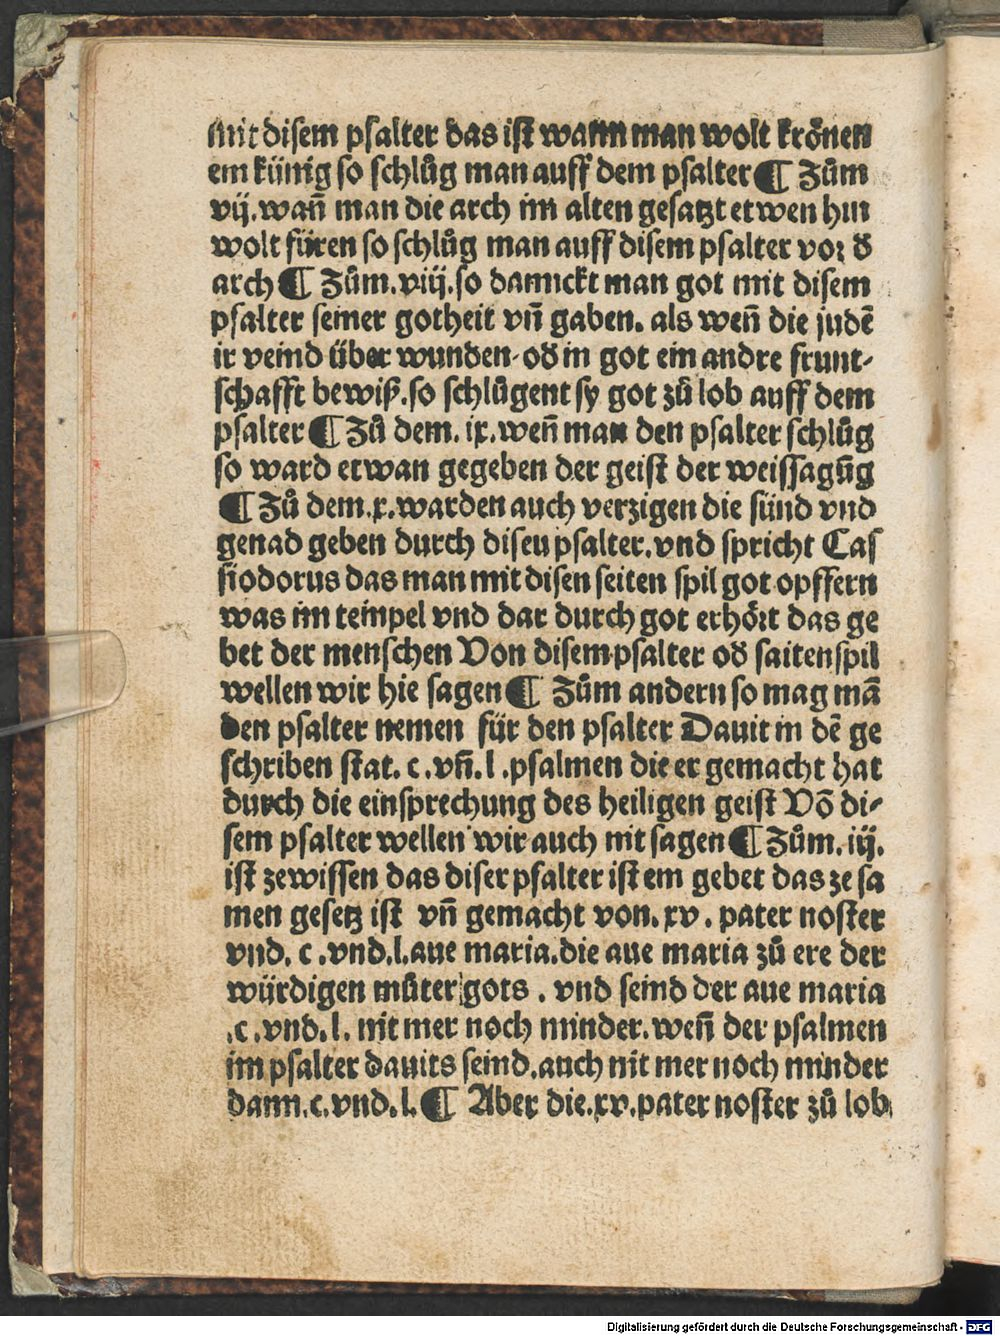 mit disem psalter das ist wann man wolt krönen
ein künig so schlůg man auff dem psalter ¶ Zům
vij. wañ man die arch im alten gesatzt etwen hin
wolt füren so schlůg man auff disem psalter voꝛ ď
arch ¶ Zům. viij. so danckt man got mit disem
psalter seiner gotheit vñ gaben. als weñ die judē
ir veind über wunden. oď in got ein andre frunt⸗
schafft bewiß. so schlůgent sy got zů lob auff dem
psalter ¶ Zů dem. ix. weñ man den psalter schlůg
so ward etwan gegeben der geist der weissagūg
¶ Zů dem. x. warden auch verzigen die sünd vnd
genad geben durch disen psalter. vnd spricht Cas
siodorus das man mit disen seiten spil got opffern
was im tempel vnd dar durch got erhöꝛt das ge
bet der menschen Von disem psalter oď saitenspil
wellen wir hie sagen ¶ Zům andern so mag mā
den psalter nemen für den psalter Dauit in dē ge
schriben stat. c. vñ. l. psalmen die er gemacht hat
durch die einsprechung des heiligen geist Võ di⸗
sem psalter wellen wir auch nit sagen ¶ Zům. iij.
ist zewissen das diser psalter ist ein gebet das ze sa
men gesetz ist vñ gemacht von. xv. pater noster
vnd. c. vnd. l. aue maria. die aue maria zů ere der
würdigen můter gots. vnd seind der aue maria
.c. vnd. l. nit mer noch minder. weñ der psalmen
im psalter dauits seind. auch nit mer noch minder
dann. c. vnd. l. ¶ Aber die. xv. pater noster zů lob
Digitalisierung gefördert durch die Deutsche Forschungsgemeinschaft - DFG